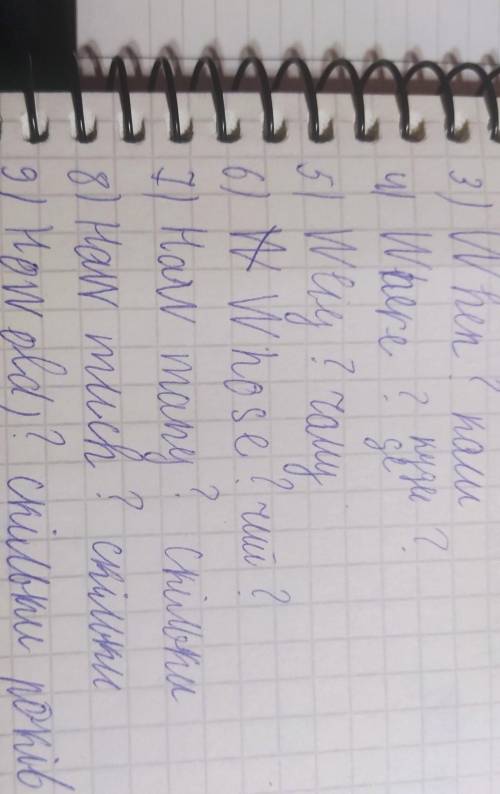 3) When? коли
4) Where? куди де?
5) Why? чому
6) Whose? чий?
7) How many? скільки
8) How much? скільки
9) How old)? скільки років